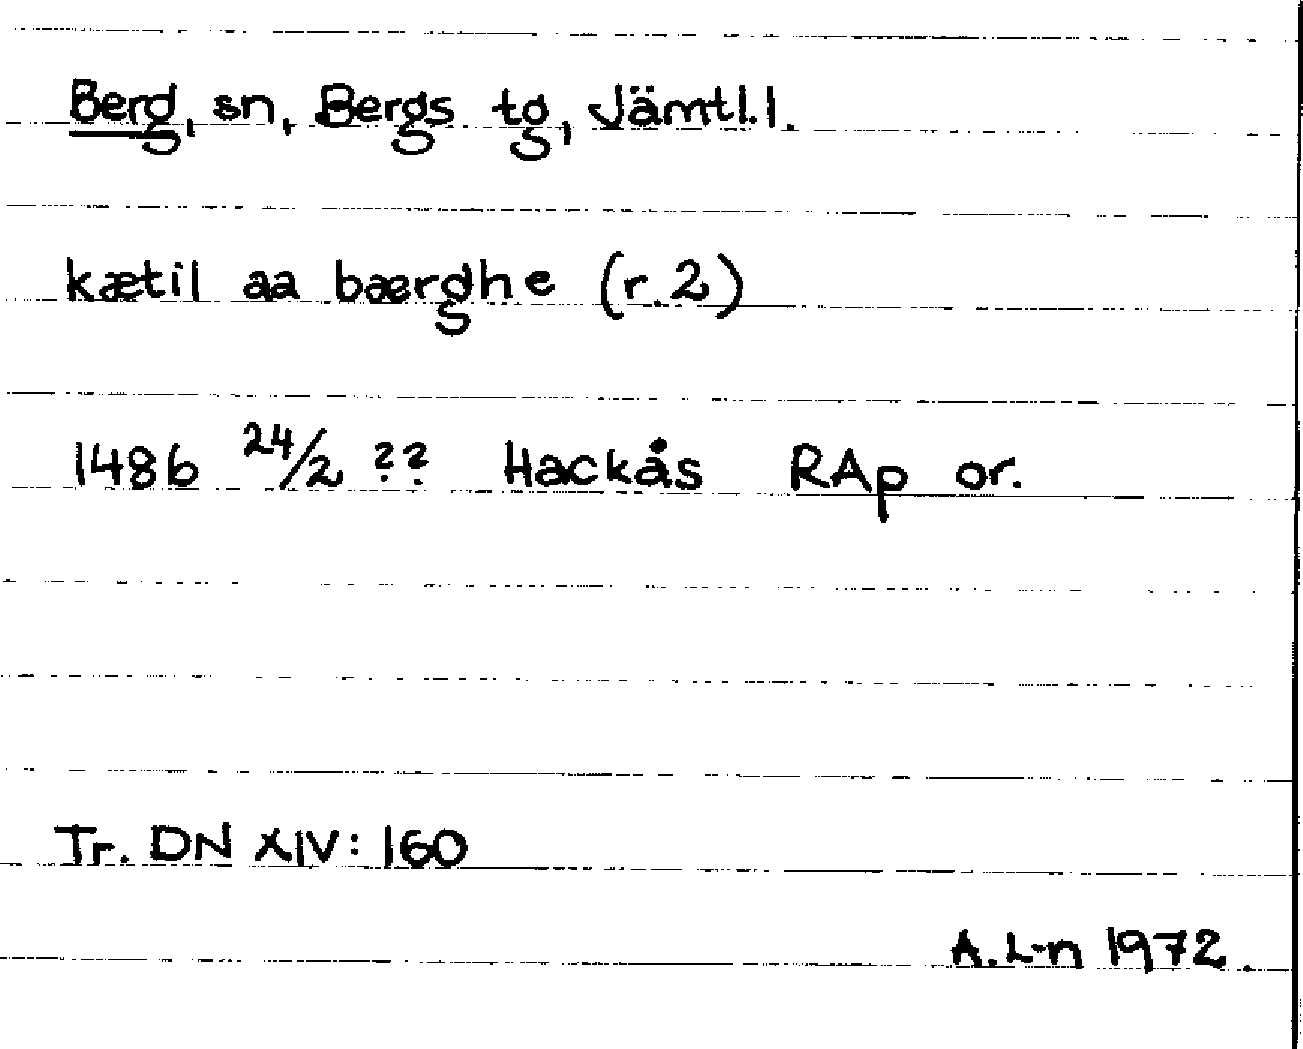 Berg, sn, Bergs tg, Jämtl.l.
kætil aa bærghe (r.2)
1486 24/2 ?? Hackås RAp or.
Tr. DN XIV: 160
A.L-n 1972.